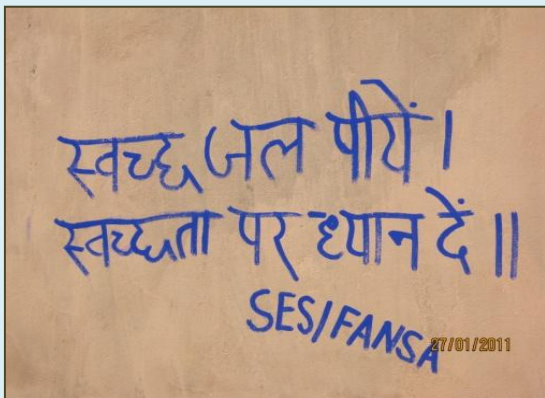 स्वच्छ जल पीयें।
स्वच्छता पर ध्यान दें॥
SES/FANSA
27/01/2011